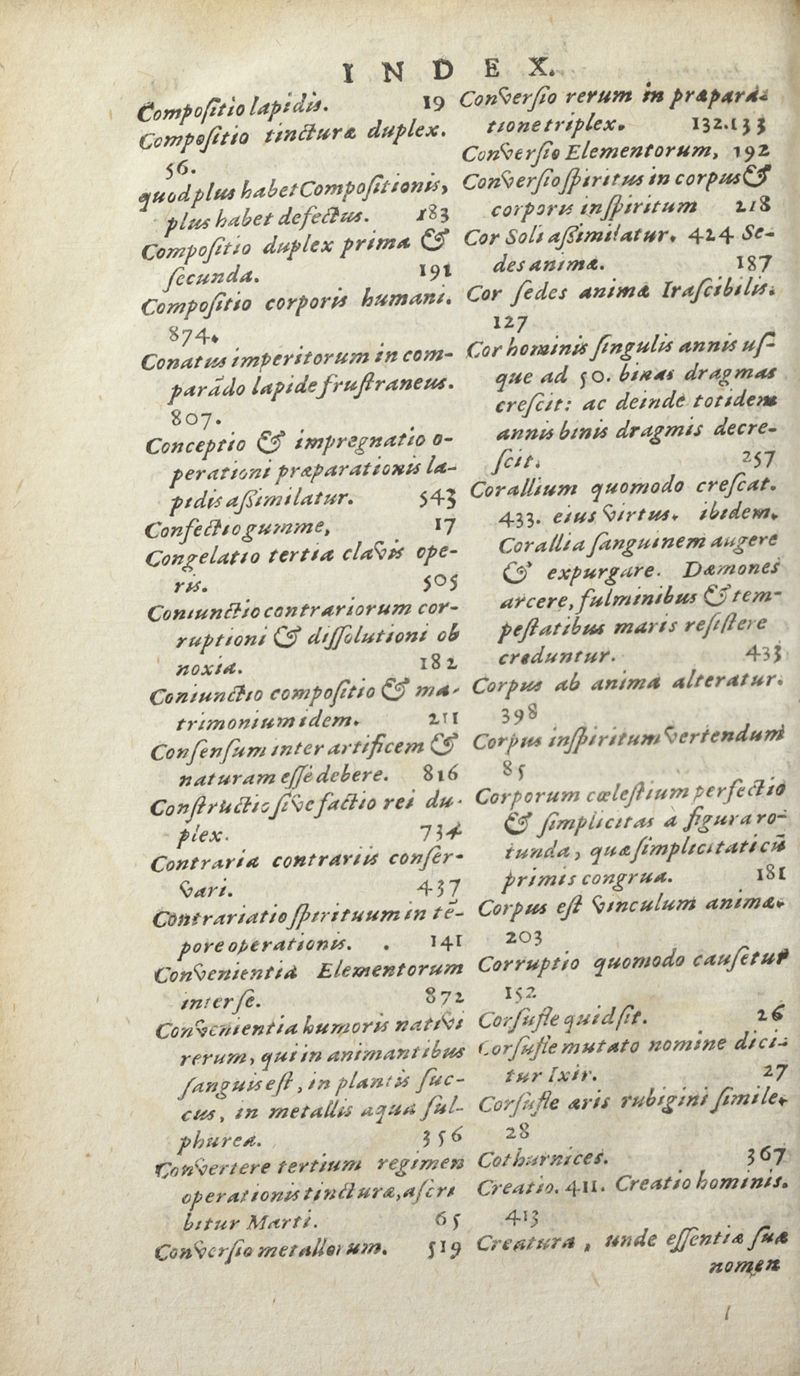 INDEX.
Compoſitio lapidis. 19
Compoſitio tincturæ duplex.
56.
quod plus habet Compoſitionis,
plus habet defectus. 183
Compoſitio duplex prima &
ſecunda. 191
Compoſitio corporis humani.
874.
Conatus imperitorum in com-
parādo lapide fruſtraneus.
807.
Conceptio & impregnatio o-
perationi præparationis la-
pidis aſsimilatur. 543
Confectio gummæ, 17
Congelatio tertia clavis ope-
ris. 505
Coniunctio contrariorum cor-
ruptioni & diſſolutioni ob
noxia. 182
Coniunctio compoſitio & ma-
trimonium idem. 211
Conſenſum inter artificem &
naturam eſſe debere. 816
Conſtructio ſive factio rei du-
plex. 734
Contraria contrariis conſer-
vari. 437
Contrariatio ſpirituum in tē-
pore operationis. 141
Convenientia Elementorum
inter ſe. 872
Convenientia humoris nativi
rerum, qui in animantibus
ſanguis eſt, in plantis ſuc-
cus, in metallis aqua ſul-
phurea. 356
Convertere tertium regimen
operationis tincturæ, aſcri
bitur Marti. 65
Converſio metallorum. 519
Converſio rerum in præpara-
tione triplex. 132.133
Converſio Elementorum, 192
Converſio ſpiritus in corpus &
corporis in ſpiritum 218
Cor Soli aſsimilatur. 424 Se-
des animæ. 187
Cor ſedes animæ Iraſcibilis.
127
Cor hominis ſingulis annis uſ-
que ad 50. binas dragmas
creſcit: ac deinde totidem
annis binis dragmis decre-
ſcit. 257
Corallium quomodo creſcat.
433. eius virtus. ibidem.
Corallia ſanguinem augere
& expurgare. Dæmones
arcere, fulminibus & tem-
peſtatibus maris reſiſtere
creduntur. 433
Corpus ab anima alteratur.
398
Corpus in ſpiritum vertendum
85
Corporum cœleſtium perfectio
& ſimplicitas a figura ro-
tunda, quæ ſimplicitati cū
primis congrua. 181
Corpus eſt vinculum animæ.
203
Corruptio quomodo cauſetur
152
Corſufle quid ſit. 26
Corſufle mutato nomine dici-
tur Ixir. 27
Corſufle æris rubigini ſimile.
28
Cothurnices. 367
Creatio. 411. Creatio hominis.
413
Creatura, unde eſſentiæ ſuæ
nomen